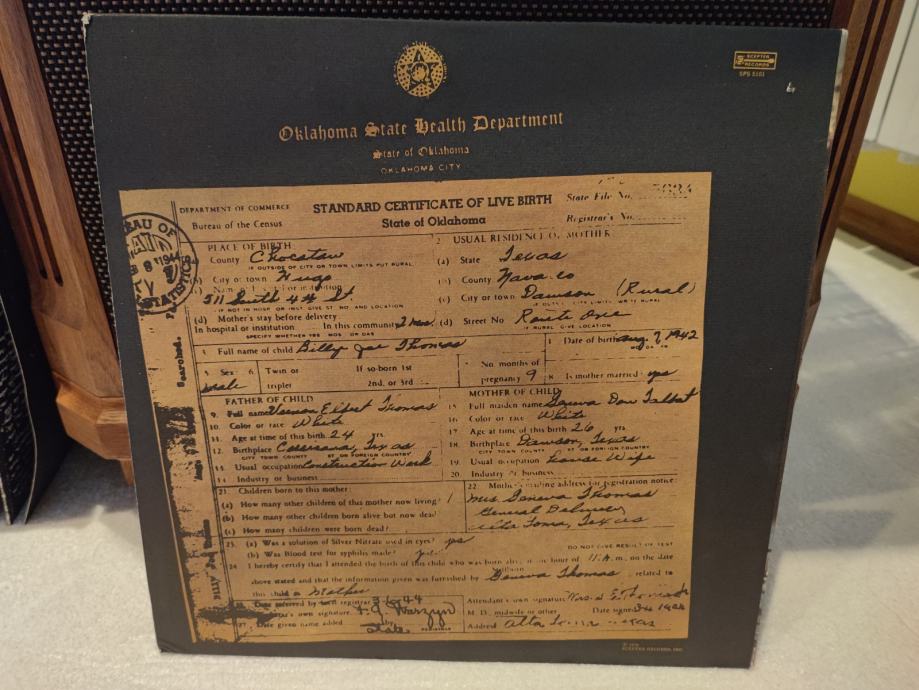 SCEPTER
RECORDS
SPS 5101
Oklahoma State Health Department
State of Oklahoma
OKLAHOMA CITY
DEPARTMENT OF COMMERCE
Bureau of the Census
STANDARD CERTIFICATE OF LIVE BIRTH
State of Oklahoma
State File No.
Registrar's No.
PLACE OF BIRTH
County Choctaw
IF OUTSIDE OF CITY OR TOWN LIMITS PUT RURAL
City or town Hugo
511 Smith 4th St.
(d) Mother's stay before delivery
In hospital or institution In this community 2 mos.
SPECIFY WHETHER YRS MOS OR DAS
2 USUAL RESIDENCE OF MOTHER
(a) State Texas
(b) County Navarro
(c) City or town Dawson (Rural)
(d) Street No Route One
IF RURAL GIVE LOCATION
Full name of child Billy Joe Thomas
Date of birth Aug. 7 1942
5 Sex male
6 Twin or triplet
If so-born 1st
2nd. or 3rd
No months of pregnancy 9
8 Is mother married yes
FATHER OF CHILD
9. Full name Vernon Elbert Thomas
10. Color or race White
11. Age at time of this birth 24 yrs.
12. Birthplace Corsicana, Texas
CITY TOWN COUNTY ST OR FOREIGN COUNTRY
Usual occupation Construction Work
14 Industry or business
MOTHER OF CHILD
15 Full maiden name Geneva Dow Talbot
16. Color or race White
17. Age at time of this birth 26 yrs.
18. Birthplace Dawson, Texas
CITY TOWN COUNTY ST OR FOREIGN COUNTRY
19. Usual occupation House Wife
20. Industry or business
21. Children born to this mother
(a) How many other children of this mother now living? 1
(b) How many other children born alive but now dead?
(c) How many children were born dead?
22. Mother's mailing address for registration notice:
Mrs Geneva Thomas
General Delivery
Alta Loma, Texas
23. (a) Was a solution of Silver Nitrate used in eyes? yes
(b) Was Blood test for syphilis made? yes
DO NOT GIVE RESULT OF TEST
24 I hereby certify that I attended the birth of this child who was born alive at the hour of 11 A.m. on the date
above stated and that the information given was furnished by Geneva Thomas related to
this child as Mother
Date received by town registrar
own signature F. G. Warzyn
27. Date given name added by State REGISTRAR
Attendant's own signature
M. D. midwife or other Date signed
Address Alta Loma Texas
Searched.
1944
STATISTICS
SCEPTER RECORDS, INC.